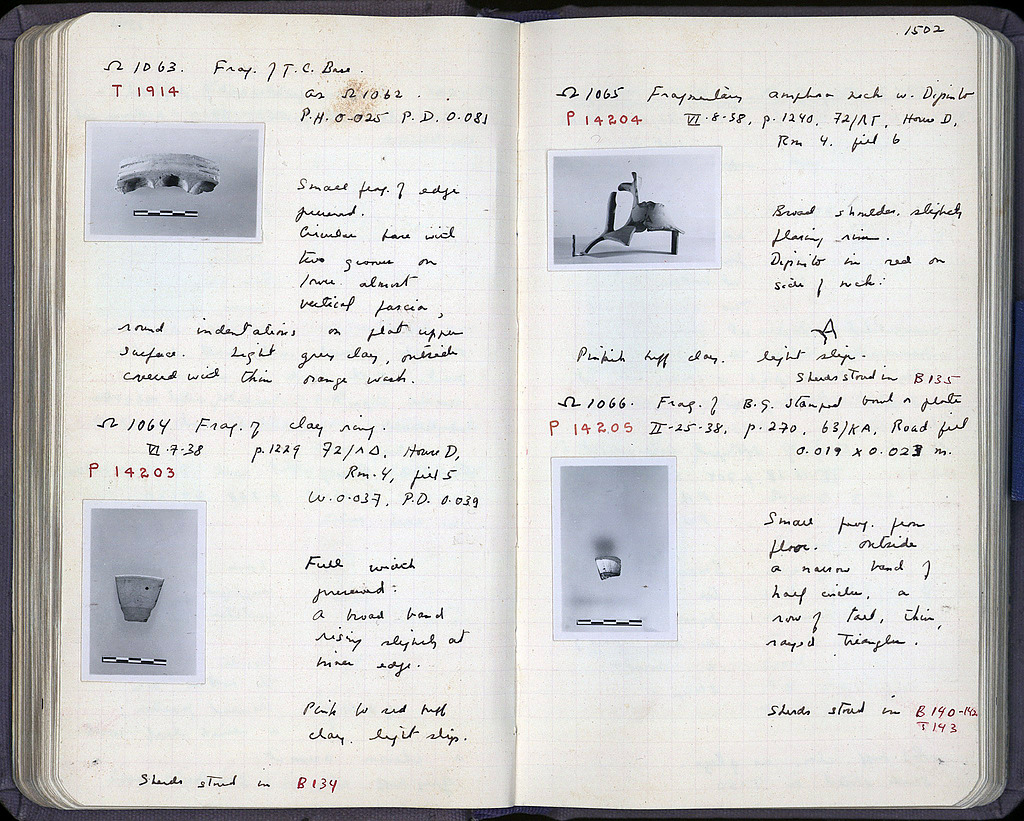 Ω 1063. Frag. of T.C. Base.
T 1914
as Ω 1062.
P.H. 0.025 P.D. 0.081
Small frag. of edge
preserved.
Circular base with
two grooves on
lower almost
vertical fascia,
round indentations on flat upper
surface. Light grey clay, outside
covered with thin orange wash.
Ω 1064 Frag. of clay ring.
VI.7.38 p.1229 72/ΛΔ, House D,
P 14203
Rm. 4, fill 5
W. 0.037, P.D. 0.039
Full width
preserved.
A broad band
rising slightly at
inner edge.
Pink to red buff
clay. light slip.
Sherds stored in B 134
1502
Ω 1065 Fragmentary amphora neck w. Dipinto
P 14204 VI.8.38, p.1240, 72/ΛΓ, House D,
Rm 4. fill 6
Broad shoulder, slightly
flaring rim.
Dipinto in red on
side of neck:
A
Pinkish buff clay. light slip.
Sherds stored in B 135
Ω 1066. Frag. of B.G. stamped bowl or plate
P 14205 II-25-38, p.270, 63/ΚΑ, Road fill
0.019 x 0.023 m.
Small frag. from
floor. outside
a narrow band of
half circles, a
row of tall, thin,
rayed triangles.
Sherds stored in B 140-142
T 143